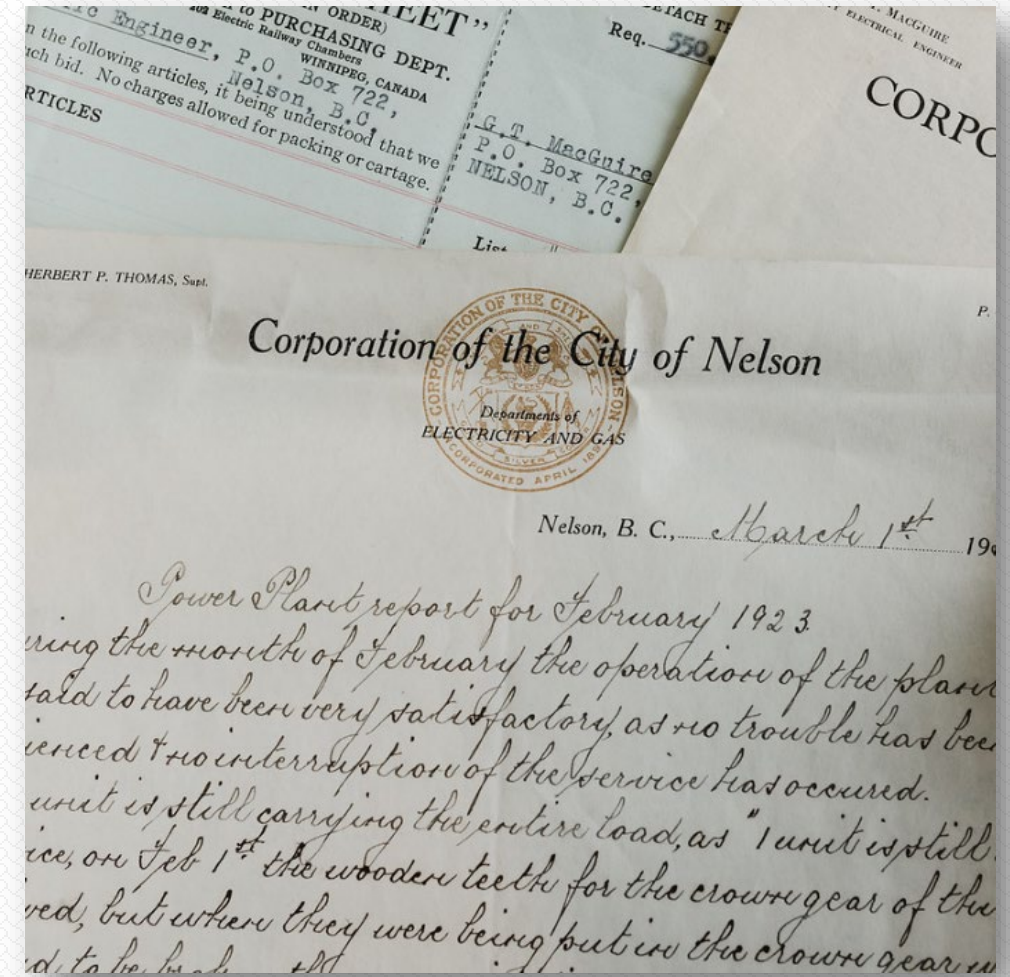 HEET"
N ORDER)
to PURCHASING DEPT.
Electric Railway Chambers
WINNIPEG, CANADA
ic Engineer, P.O. Box 722,
Nelson, B.C.
n the following articles, it being understood that we
uch bid. No charges allowed for packing or cartage.
RTICLES
ETACH TH
Req. 550.
G.T. MacGuire
P.O. Box 722,
NELSON, B.C.
List
MACGUIRE
ELECTRICAL ENGINEER
CORPO
HERBERT P. THOMAS, Supt.
P.
CORPORATION OF THE CITY OF NELSON
Corporation of the City of Nelson
Departments of
ELECTRICITY AND GAS
SILVER
INCORPORATED APRIL
Nelson, B. C., March 1st 19
Power Plant report for February 1923.
ring the month of February the operation of the plant
said to have been very satisfactory, as no trouble has been
ienced & no interruption of the service has occured.
unit is still carrying the entire load, as "1 unit is still
ice, on Feb 1st the wooden teeth for the crown gear of the
ved, but when they were being put in the crown gear
d to be